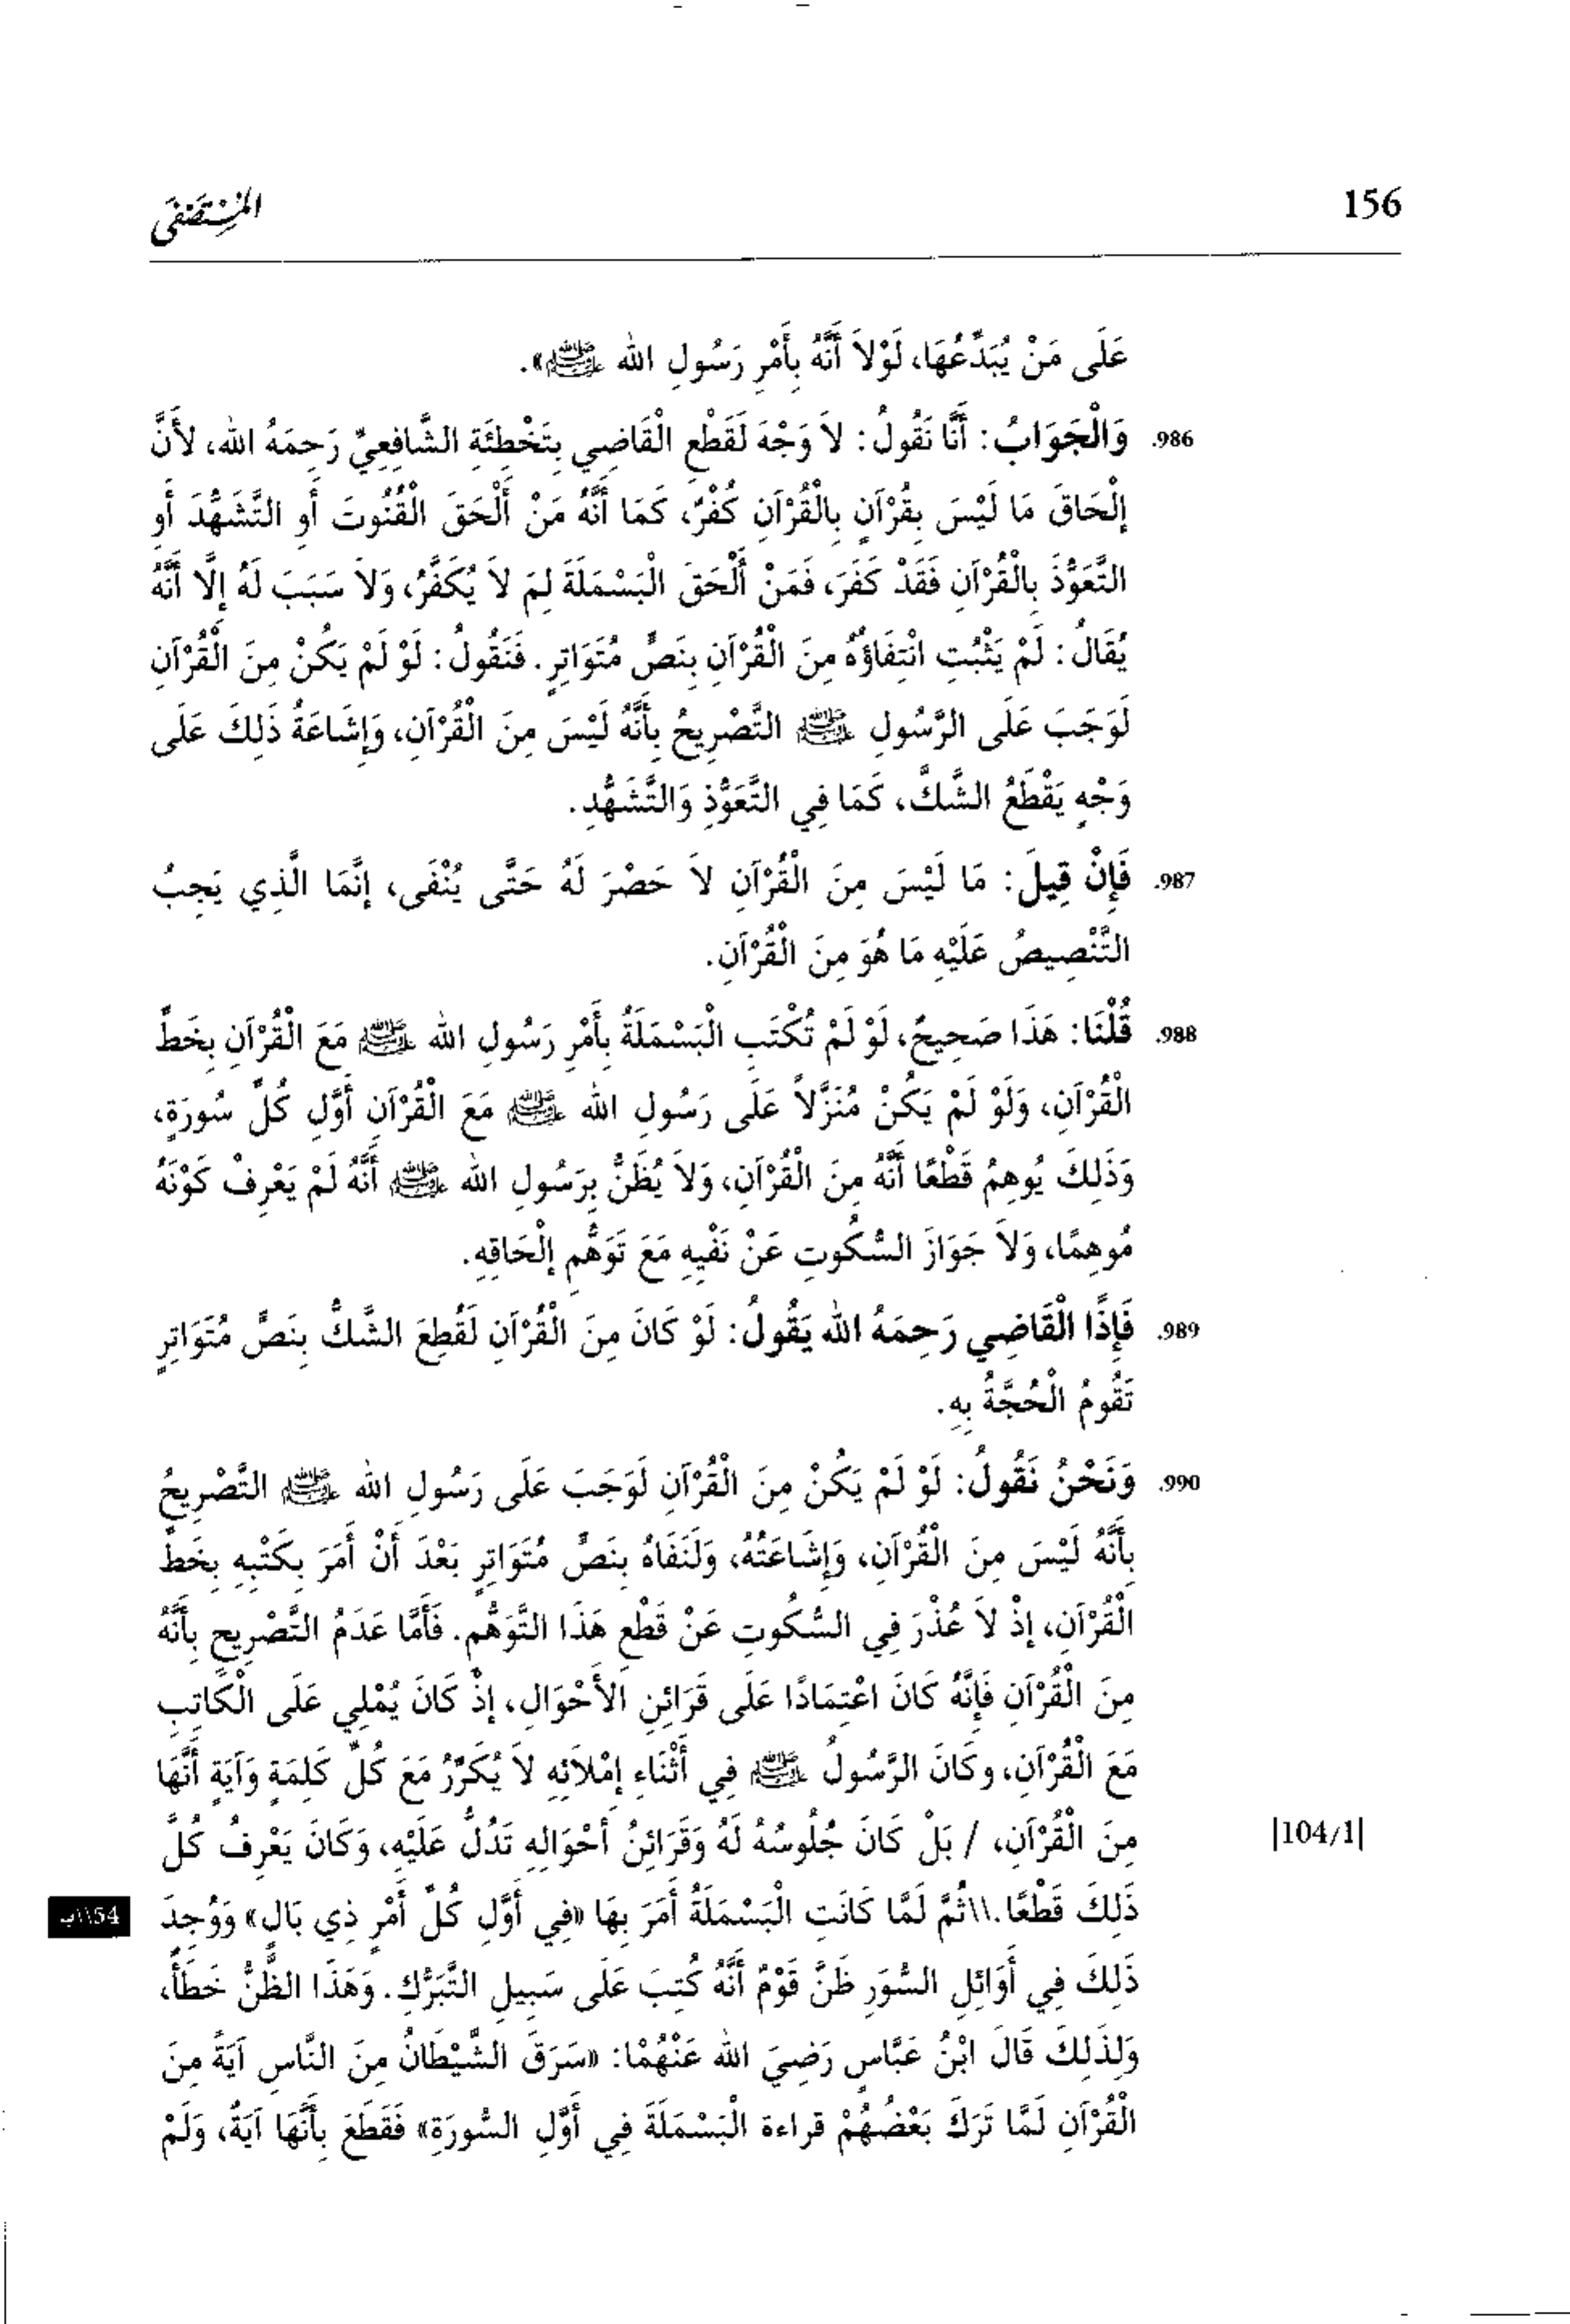 156
المُسْتَصْفَى
عَلَى مَنْ يُبَدِّعُهَا، لَوْلاَ أَنَّهُ بِأَمْرِ رَسُولِ الله ﷺ».
986. وَالْجَوَابُ: أَنَّا نَقُولُ: لاَ وَجْهَ لَقَطْعِ الْقَاضِي بِتَخْطِئَةِ الشَّافِعِيِّ رَحِمَهُ الله، لأَنَّ
إِلْحَاقَ مَا لَيْسَ بِقُرْآنٍ بِالْقُرْآنِ كُفْرٌ، كَمَا أَنَّهُ مَنْ أَلْحَقَ الْقُنُوتَ أَو التَّشَهُّدَ أَو
التَّعَوُّذَ بِالْقُرْآنِ فَقَدْ كَفَرَ، فَمَنْ أَلْحَقَ الْبَسْمَلَةَ لِمَ لاَ يُكَفَّرُ، وَلاَ سَبَبَ لَهُ إِلَّا أَنَّهُ
يُقَالُ: لَمْ يَثْبُتِ انْتِفَاؤُهُ مِنَ الْقُرْآنِ بِنَصٍّ مُتَوَاتِرٍ. فَنَقُولُ: لَوْ لَمْ يَكُنْ مِنَ الْقُرْآنِ
لَوَجَبَ عَلَى الرَّسُولِ ﷺ التَّصْرِيحُ بِأَنَّهُ لَيْسَ مِنَ الْقُرْآنِ، وَإِشَاعَةُ ذَلِكَ عَلَى
وَجْهٍ يَقْطَعُ الشَّكَّ، كَمَا فِي التَّعَوُّذِ وَالتَّشَهُّدِ.
987. فَإِنْ قِيلَ: مَا لَيْسَ مِنَ الْقُرْآنِ لاَ حَصْرَ لَهُ حَتَّى يُنْفَى، إِنَّمَا الَّذِي يَجِبُ
التَّنْصِيصُ عَلَيْهِ مَا هُوَ مِنَ الْقُرْآنِ.
988. قُلْنَا: هَذَا صَحِيحٌ، لَوْ لَمْ تُكْتَبِ الْبَسْمَلَةُ بِأَمْرِ رَسُولِ الله ﷺ مَعَ الْقُرْآنِ بِخَطِّ
الْقُرْآنِ، وَلَوْ لَمْ يَكُنْ مُنَزَّلاً عَلَى رَسُولِ الله ﷺ مَعَ الْقُرْآنِ أَوَّلِ كُلِّ سُورَةٍ،
وَذَلِكَ يُوهِمُ قَطْعًا أَنَّهُ مِنَ الْقُرْآنِ، وَلاَ يُظَنُّ بِرَسُولِ الله ﷺ أَنَّهُ لَمْ يَعْرِفْ كَوْنَهُ
مُوهِمًا، وَلاَ جَوَازَ السُّكُوتِ عَنْ نَفْيِهِ مَعَ تَوَهُّمِ إِلْحَاقِهِ.
989. فَإِذًا الْقَاضِي رَحِمَهُ الله يَقُولُ: لَوْ كَانَ مِنَ الْقُرْآنِ لَقُطِعَ الشَّكُّ بِنَصٍّ مُتَوَاتِرٍ
تَقُومُ الْحُجَّةُ بِهِ.
990. وَنَحْنُ نَقُولُ: لَوْ لَمْ يَكُنْ مِنَ الْقُرْآنِ لَوَجَبَ عَلَى رَسُولِ الله ﷺ التَّصْرِيحُ
بِأَنَّهُ لَيْسَ مِنَ الْقُرْآنِ، وَإِشَاعَتُهُ، وَلَنَفَاهُ بِنَصٍّ مُتَوَاتِرٍ بَعْدَ أَنْ أَمَرَ بِكَتْبِهِ بِخَطِّ
الْقُرْآنِ، إِذْ لاَ عُذْرَ فِي السُّكُوتِ عَنْ قَطْعِ هَذَا التَّوَهُّمِ. فَأَمَّا عَدَمُ التَّصْرِيحِ بِأَنَّهُ
مِنَ الْقُرْآنِ فَإِنَّهُ كَانَ اعْتِمَادًا عَلَى قَرَائِنِ الأَحْوَالِ، إِذْ كَانَ يُمْلِي عَلَى الْكَاتِبِ
مَعَ الْقُرْآنِ، وكَانَ الرَّسُولُ ﷺ فِي أَثْنَاءِ إِمْلاَئِهِ لاَ يُكَرِّرُ مَعَ كُلِّ كَلِمَةٍ وَآيَةٍ أَنَّهَا
مِنَ الْقُرْآنِ، / بَلْ كَانَ جُلُوسُهُ لَهُ وَقَرَائِنُ أَحْوَالِهِ تَدُلُّ عَلَيْهِ، وَكَانَ يَعْرِفُ كُلَّ
|104/1|
ذَلِكَ قَطْعًا.\\ثُمَّ لَمَّا كَانَتِ الْبَسْمَلَةُ أَمَرَ بِهَا «فِي أَوَّلِ كُلِّ أَمْرٍ ذِي بَالٍ» وَوُجِدَ
54\\ب
ذَلِكَ فِي أَوَائِلِ السُّوَرِ ظَنَّ قَوْمٌ أَنَّهُ كُتِبَ عَلَى سَبِيلِ التَّبَرُّكِ. وَهَذَا الظَّنُّ خَطَأٌ،
وَلِذَلِكَ قَالَ ابْنُ عَبَّاسٍ رَضِيَ الله عَنْهُمَا: «سَرَقَ الشَّيْطَانُ مِنَ النَّاسِ آيَةً مِنَ
الْقُرْآنِ لَمَّا تَرَكَ بَعْضُهُمْ قراءة الْبَسْمَلَةَ فِي أَوَّلِ السُّورَةِ» فَقَطَعَ بِأَنَّهَا آيَةٌ، وَلَمْ